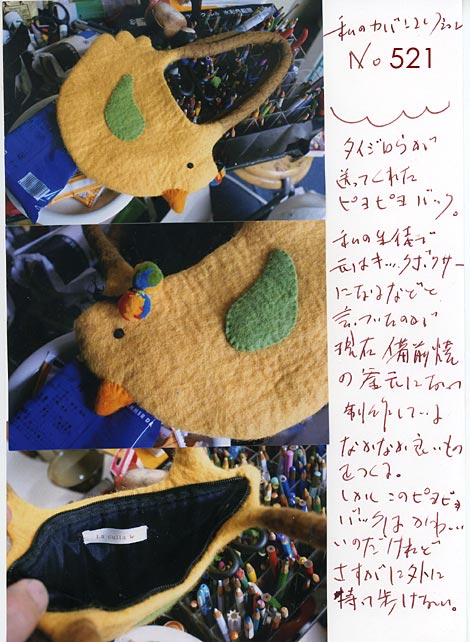 私のカバンコレクション
No 521
タイジロウが
送ってくれた
ピヨピヨバック。
私の生徒で
元はキックボクサー
になるなどと
言っていたのが
現在 備前焼
の窯元になって
制作している
なかなか良いもの
をつくる。
しかし このピヨピヨ
バックは かわい
いのだけれど
さすがに外に
持って歩けない。
La cuita